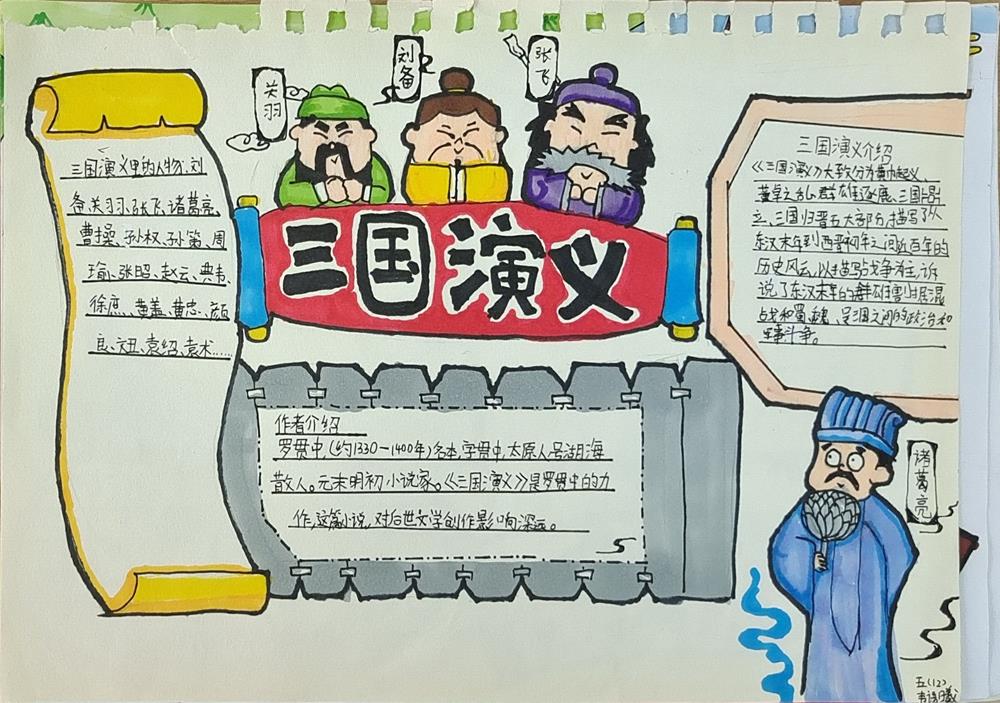 关羽
刘备
张飞
三国演义
三国演义里的人物:刘
备、关羽、张飞、诸葛亮、
曹操、孙权、孙策、周
瑜、张昭、赵云、典韦、
徐庶、黄盖、黄忠、颜
良、文丑、袁绍、袁术……
作者介绍
罗贯中,(约1330一1400年)名本,字贯中,太原人号湖海
散人。元末明初小说家。《三国演义》是罗贯中的力
作,这篇小说,对后世文学创作影响深远。
三国演义介绍
《三国演义》大致分为黄巾起义、
董卓之乱、群雄逐鹿、三国鼎
立、三国归晋五大部分,描写了从
东汉末年到西晋初年之间近百年的
历史风云,以描写战争为主,诉
说了东汉末年的群雄割据混
战和蜀、魏、吴三国之间的政治和
军事斗争。
诸葛亮
五(12)